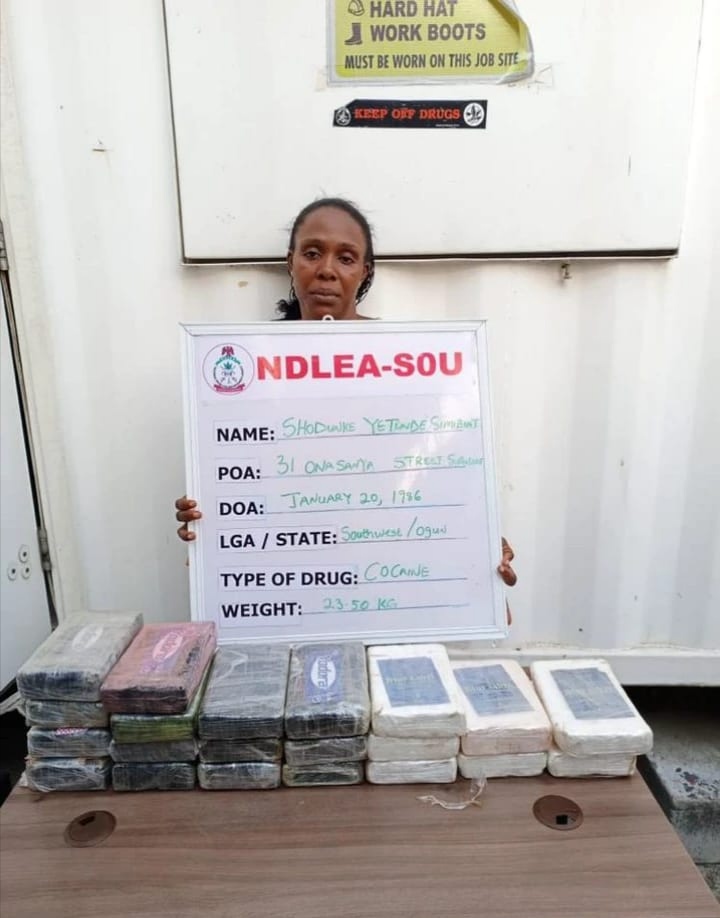 HARD HAT
WORK BOOTS
MUST BE WORN ON THIS JOB SITE
KEEP OFF DRUGS
NDLEA-SOU
NAME: SHODUNKE YETUNDE SIMIBIAT
POA: 31 ONASANYA STREET
DOA: JANUARY 20, 1986
LGA / STATE: Southwest/Ogun
TYPE OF DRUG: COCAINE
WEIGHT: 23.50 KG